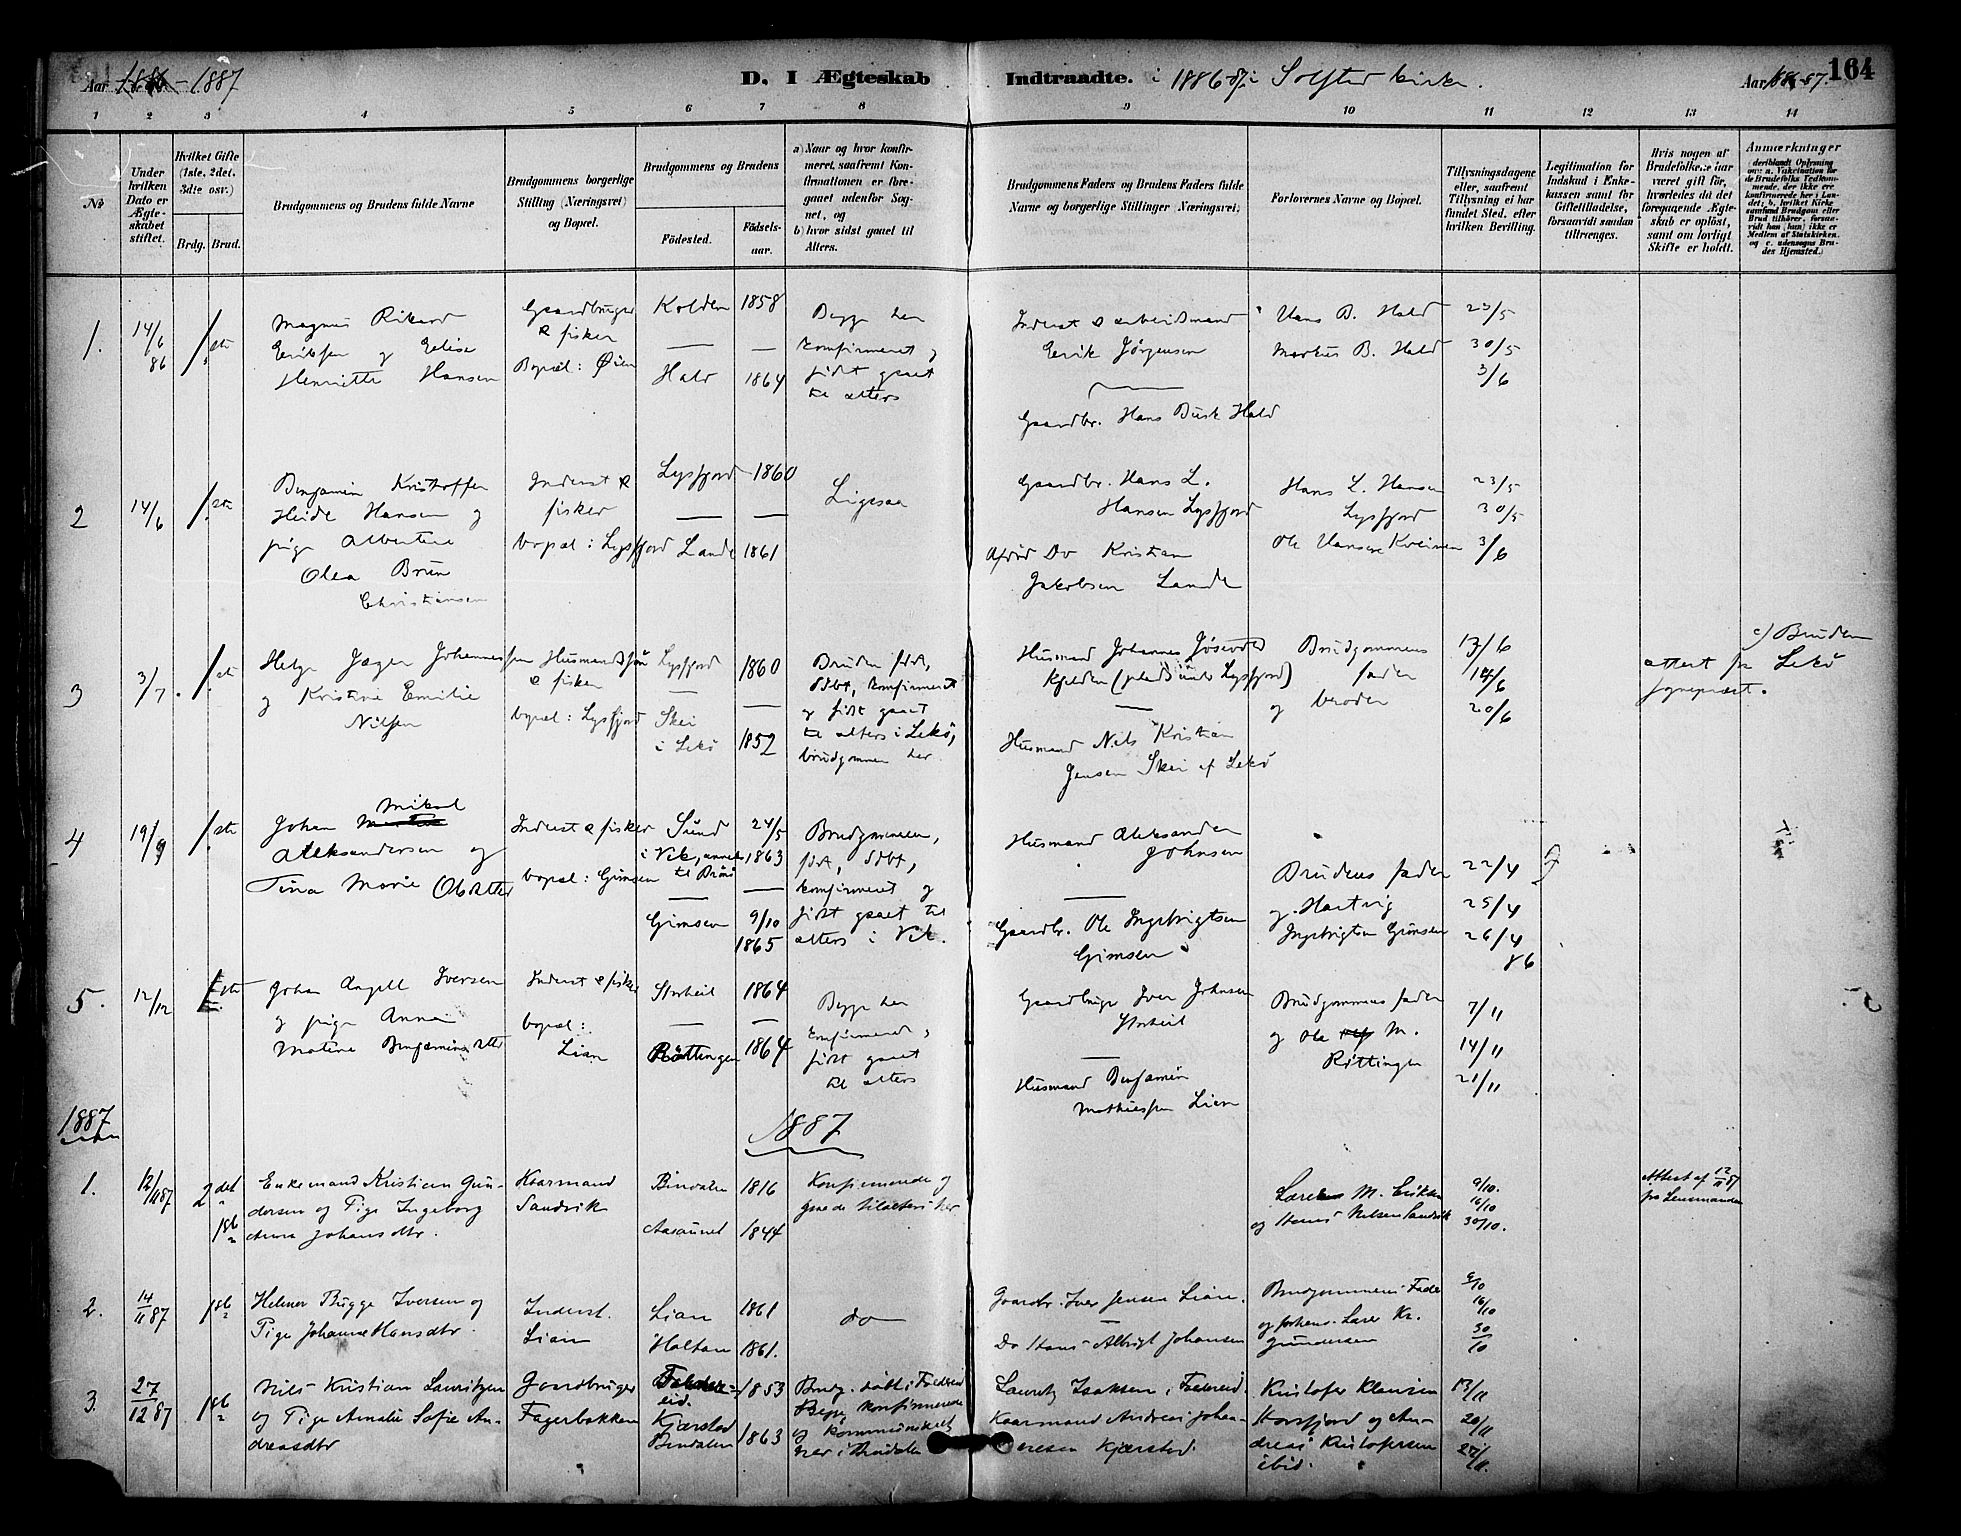 Aar 1886-1887
D. I Ægteskab Indtraadte. i 1886-87 i Solstad kirke.
Aar 1886-87. 164
1 2 3 4 5 6 7 8 9 10 11 12 13 14
No
Under hvilken Dato er Ægteskabet stiftet.
Hvilket Gifte (1ste, 2det, 3dte osv.)
Brdg. Brud.
Brudgommens og Brudens fulde Navne
Brudgommens borgerlige Stilling (Næringsvei) og Bopæl.
Brudgommens og Brudens
Födested.
Födselsaar.
a) Naar og hvor konfirmeret, saafremt Konfirmationen er foregaaet udenfor Sognet, og
b) hvor sidst gaaet til Alters.
Brudgommens Faders og Brudens Faders fulde Navne og borgerlige Stillinger (Næringsvei)
Forlovernes Navne og Bopæl.
Tillysningsdagene eller, saafremt Tillysning ei har fundet Sted, efter hvilken Bevilling.
Legitimation for Indskud i Enkekassen samt for Giftetilladelse, forsaavidt saadan tiltrænges.
Hvis nogen af Brudefolkene har været gift för, hvorledes da det foregaaende Ægteskab er oplöst, samt om lovligt Skifte er holdt.
Anmærkninger
1.
14/6 86
1 ste
Magnus Rikard
Eriksen og Elise
Henriette Hansen
Gaardbruger
& fisker
Bopæl: Øien
Kolden 1858
Hald 1864
Begge her
konfirmeret og
sidst gaaet
til alters
Inderst & arbeidsmand
Erik Jørgensen
Gaardbr. Hans Busk Hald
Hans B. Hald
Markus B. Hald
23/5
30/5
3/6
2
14/6
1 ste
Benjamin Kristoffer
Heide Hansen og
pige Albertine
Olea Brun
Christiansen
Inderst &
fisker
bopæl: Lysfjord
Lysfjord 1860
Lande 1861
Ligesaa
Gaardbr. Hans L.
Hansen Lysfjord
Afdød Do Kristian
Jakobsen Lande
Hans L. Hansen
Lysfjord
Ole Hansen
23/5
30/5
3/6
3
3/7
1 ste
Helge Jæger Johannessen
og Kristine Emilie
Nilsen
Husmandssøn
& fisker
bopæl: Lysfjord
Lysfjord 1860
Skei
i Lekö 1852
Bruden født,
döbt, konfirmeret
og sidst gaaet
til alters i Lekö,
brudgommen her
Husmand Johannes
Kjelden (plads under Lysfjord)
Husmand Nils Kristian
Jensen Skei af Lekö
Brudgommens
fader
og broder
13/6
14/6
20/6
attest fra
sognepræst.
c) Bruden
Lekö
4
19/9
1 ste
Johan Mikael
Aleksandersen og
Tina Marie Olsdtter
Inderst & fisker
bopæl: Gimsen
Sund
i Vik, annex
til Brönö
24/5
1863
Gimsen
9/10
1865
Brudgommen,
født, döbt,
konfirmeret og
sidst gaaet til
alters i Vik.
Husmand Aleksander
Johnsen
Gaardbr. Ole Ingebrigtsen
Gimsen
Brudens fader
og Hartvig
Ingebrigtsen Gimsen
22/4
25/4
26/4
86
5.
12/12
1 ste
Johan Angell Iversen
og pige Anna
Motine Benjaminsdtter
Inderst & fisker
bopæl:
Lian
Storheil 1864
Röttingen 1864
Begge her
konfirmeret og
sidst gaaet
til alters
Gaardbruger Iver Johnsen
Storheil
Husmand Benjamin
Mathiessen Lian
Brudgommens fader
og Ole M.
Röttingen
7/11
14/11
21/11
1887
1887
1.
12/11 87
2 det
1ste
Enkemand Kristian Gundersen
og Pige Ingeborg
Anna Johansdtr.
Kaarmand
Sandvik
Bindalen 1816
Aasaunet 1844
Konfirmerede og
gaaede tilalters her
M. Eriksen
og Hans Nilsen Sandvik
9/10.
16/10
30/10.
Attest af 12/11 87
fra Lensmanden
2.
14/11 87
1ste
Helmer Bugge Iversen og
Pige Johanna Hansdtr.
Inderst.
Lian
Lian 1861
Holtan 1861.
do
Gaardbr. Iver Jensen Lian.
Do Hans Albrigt Johansen
Brudgommens Fader
og Lars Kr.
Gundersen
9/10
16/10
30/10
3.
27/12 87
1ste
Nils Kristian Lauritzen
og Pige Amalie Sofie Andreasdtr
Gaardbruger
Fagerbakken
Foldereid. 1853
Kjærstad
Bindalen 1863
Brudg. döbt i Foldereid
Begge konfirmerede
og kommuniseret
her i Bindalen
Lauritz Isaksen, Foldereid.
Kaarmand Andreas Johannesen
Kjærstad.
Kristofer Klausen
Horsfjord og Andreas
Kristofersen
ibid.
13/11
20/11
27/11.